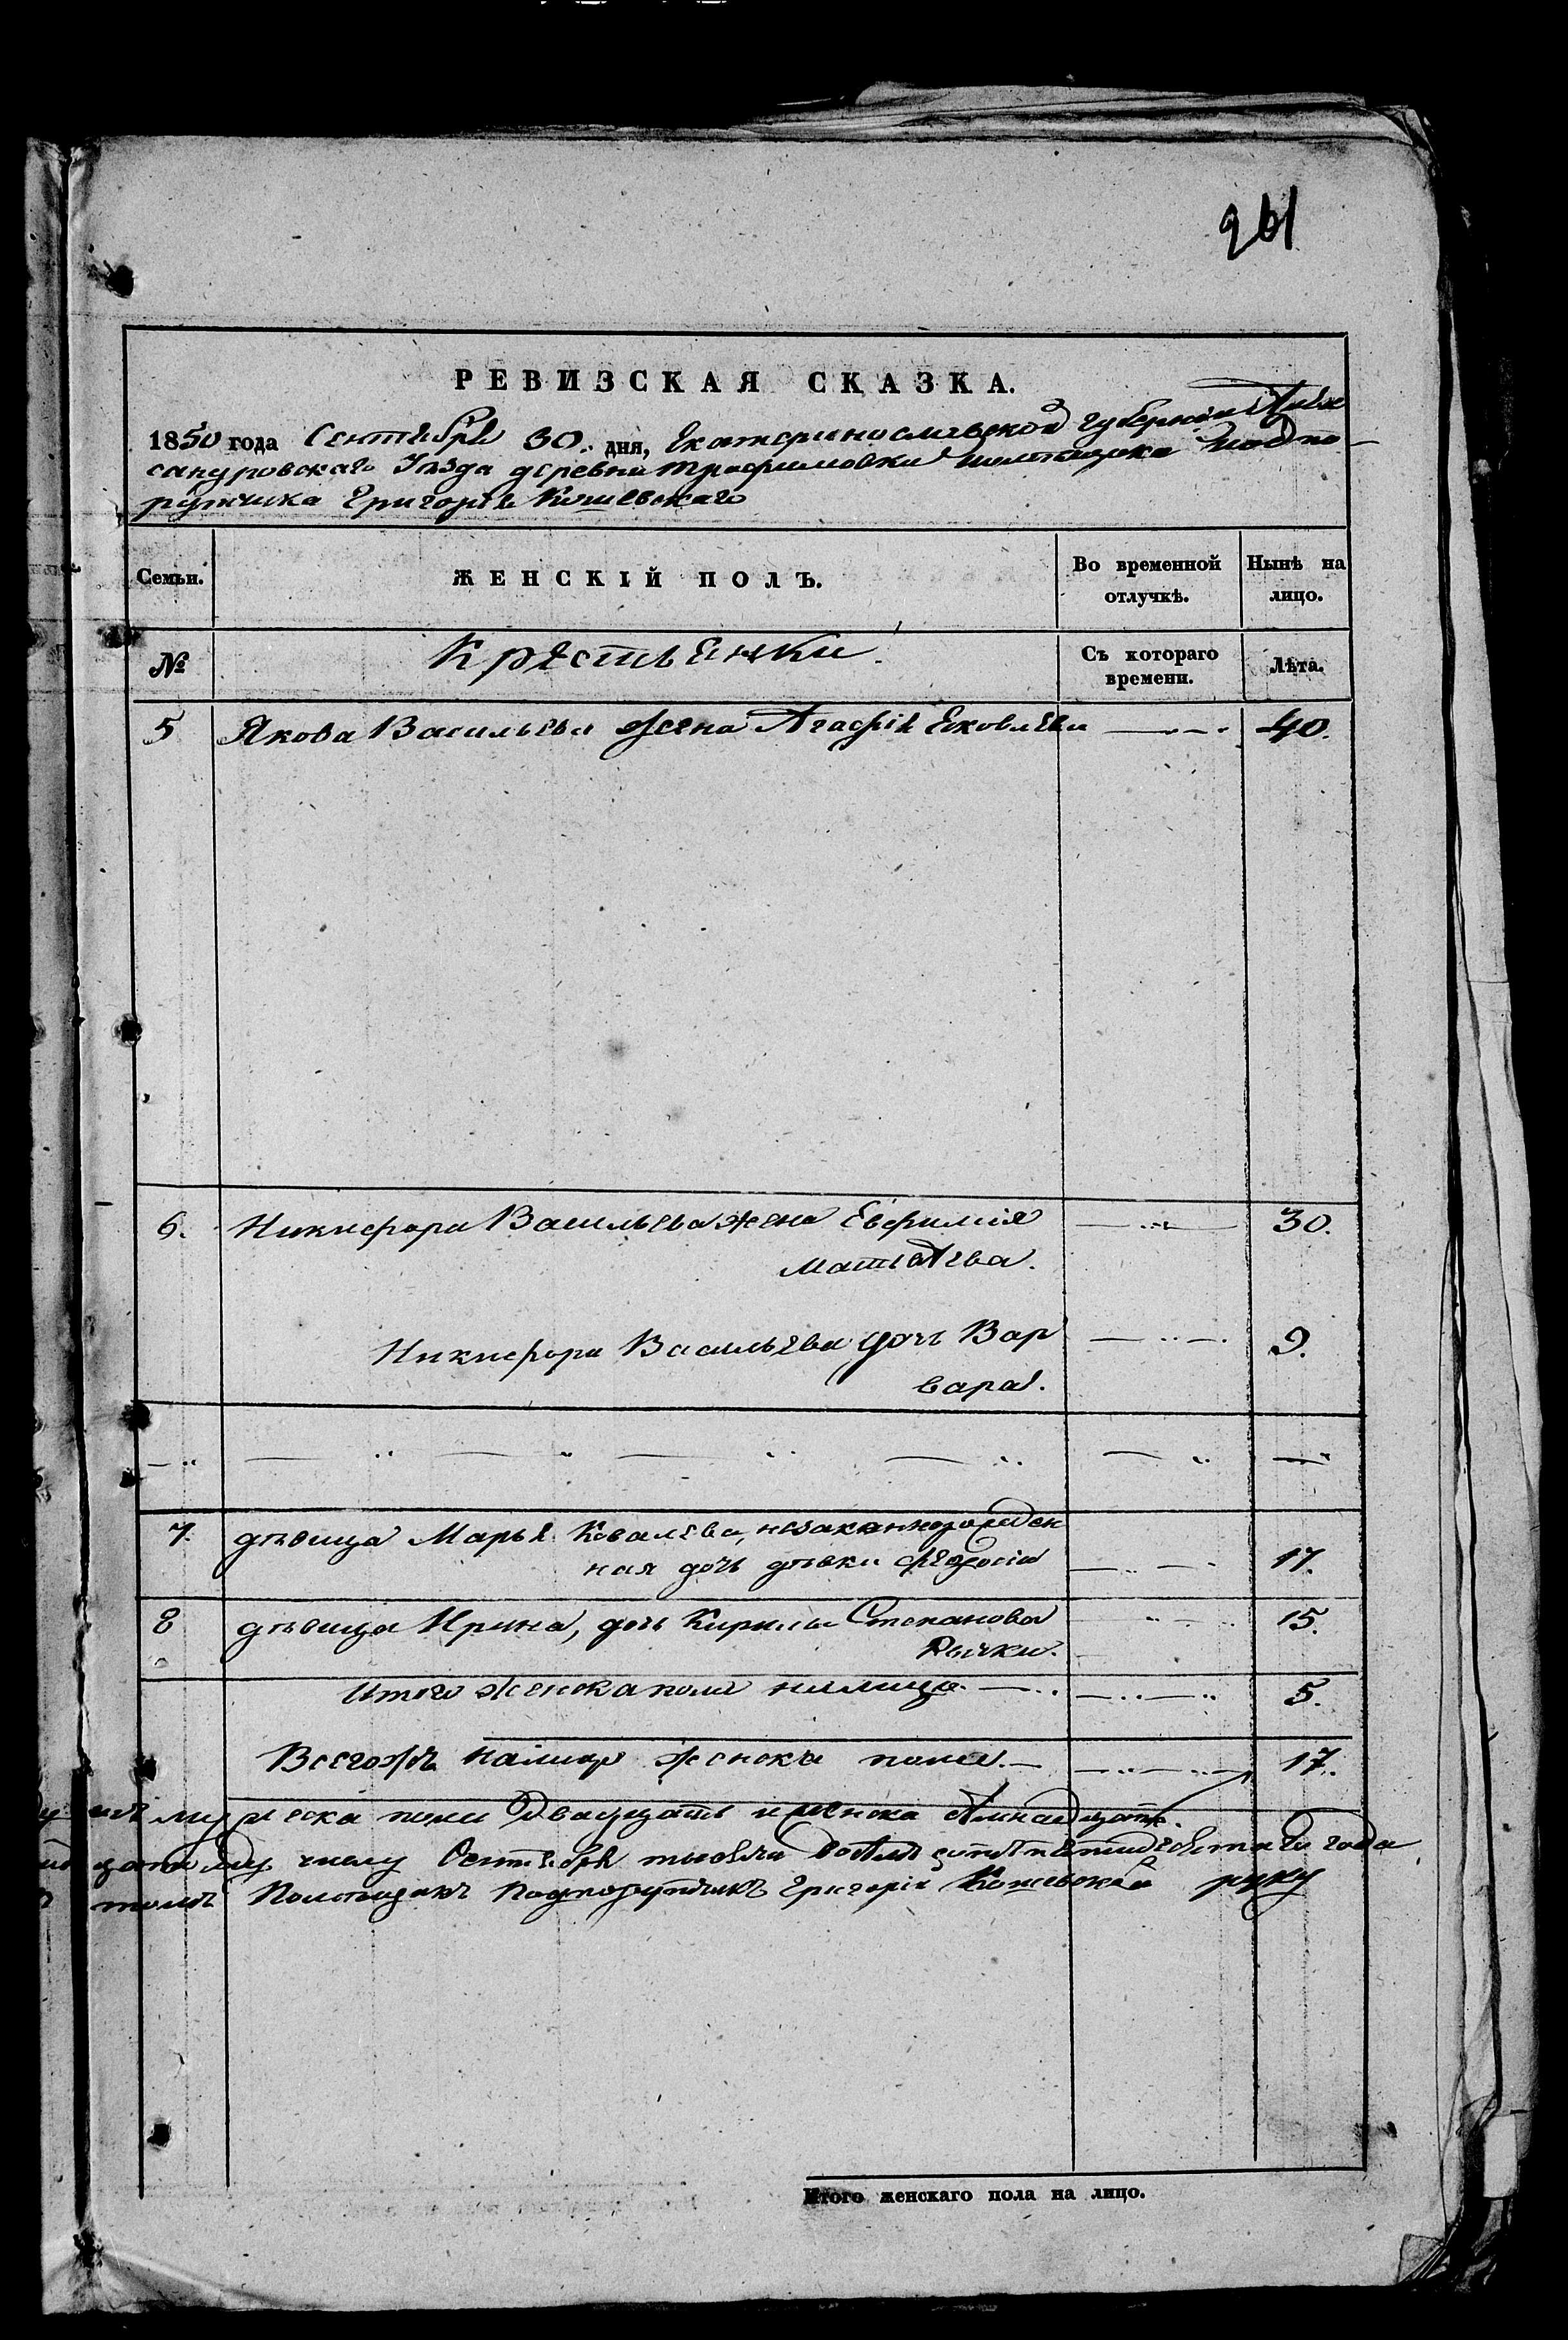 261
РЕВИЗСКАЯ СКАЗКА.
1850 года Сентября 30. дня, Екатеринославской губернии Алек
сандровскаго Уѣзда деревни Трофимовки помѣщика Подпо-
ручика Григорія Кошевскаго
Семьи. ЖЕНСКІЙ ПОЛЪ. Во временной отлучкѣ. Нынѣ на лицо.
№ Крестьянки. Съ котораго времени. Лѣта.
5 Якова Васильева жена Агафія Яковлева 40.
6. Никифора Васильева жена Евфимія 30.
Матвѣева.
Никифора Васильева дочь Вар 9.
вара.
7. дѣвица Марья Ковалева, незаконнорожден
ная дочь дѣвки Феодосіи 17.
8 дѣвица Ирина, дочь Кирилы Степанова 15.
Рычки.
Итого женска пола на лицо. 5.
Всегожъ на лицо женска пола. 17.
мужеска пола двадцать и женска семнадцать.
числу Сентября тысяча восемь сотъ пятидесятаго года
Помѣщикъ Подпоручикъ Григорій Кошевской руку
Итого женскаго пола на лицо.